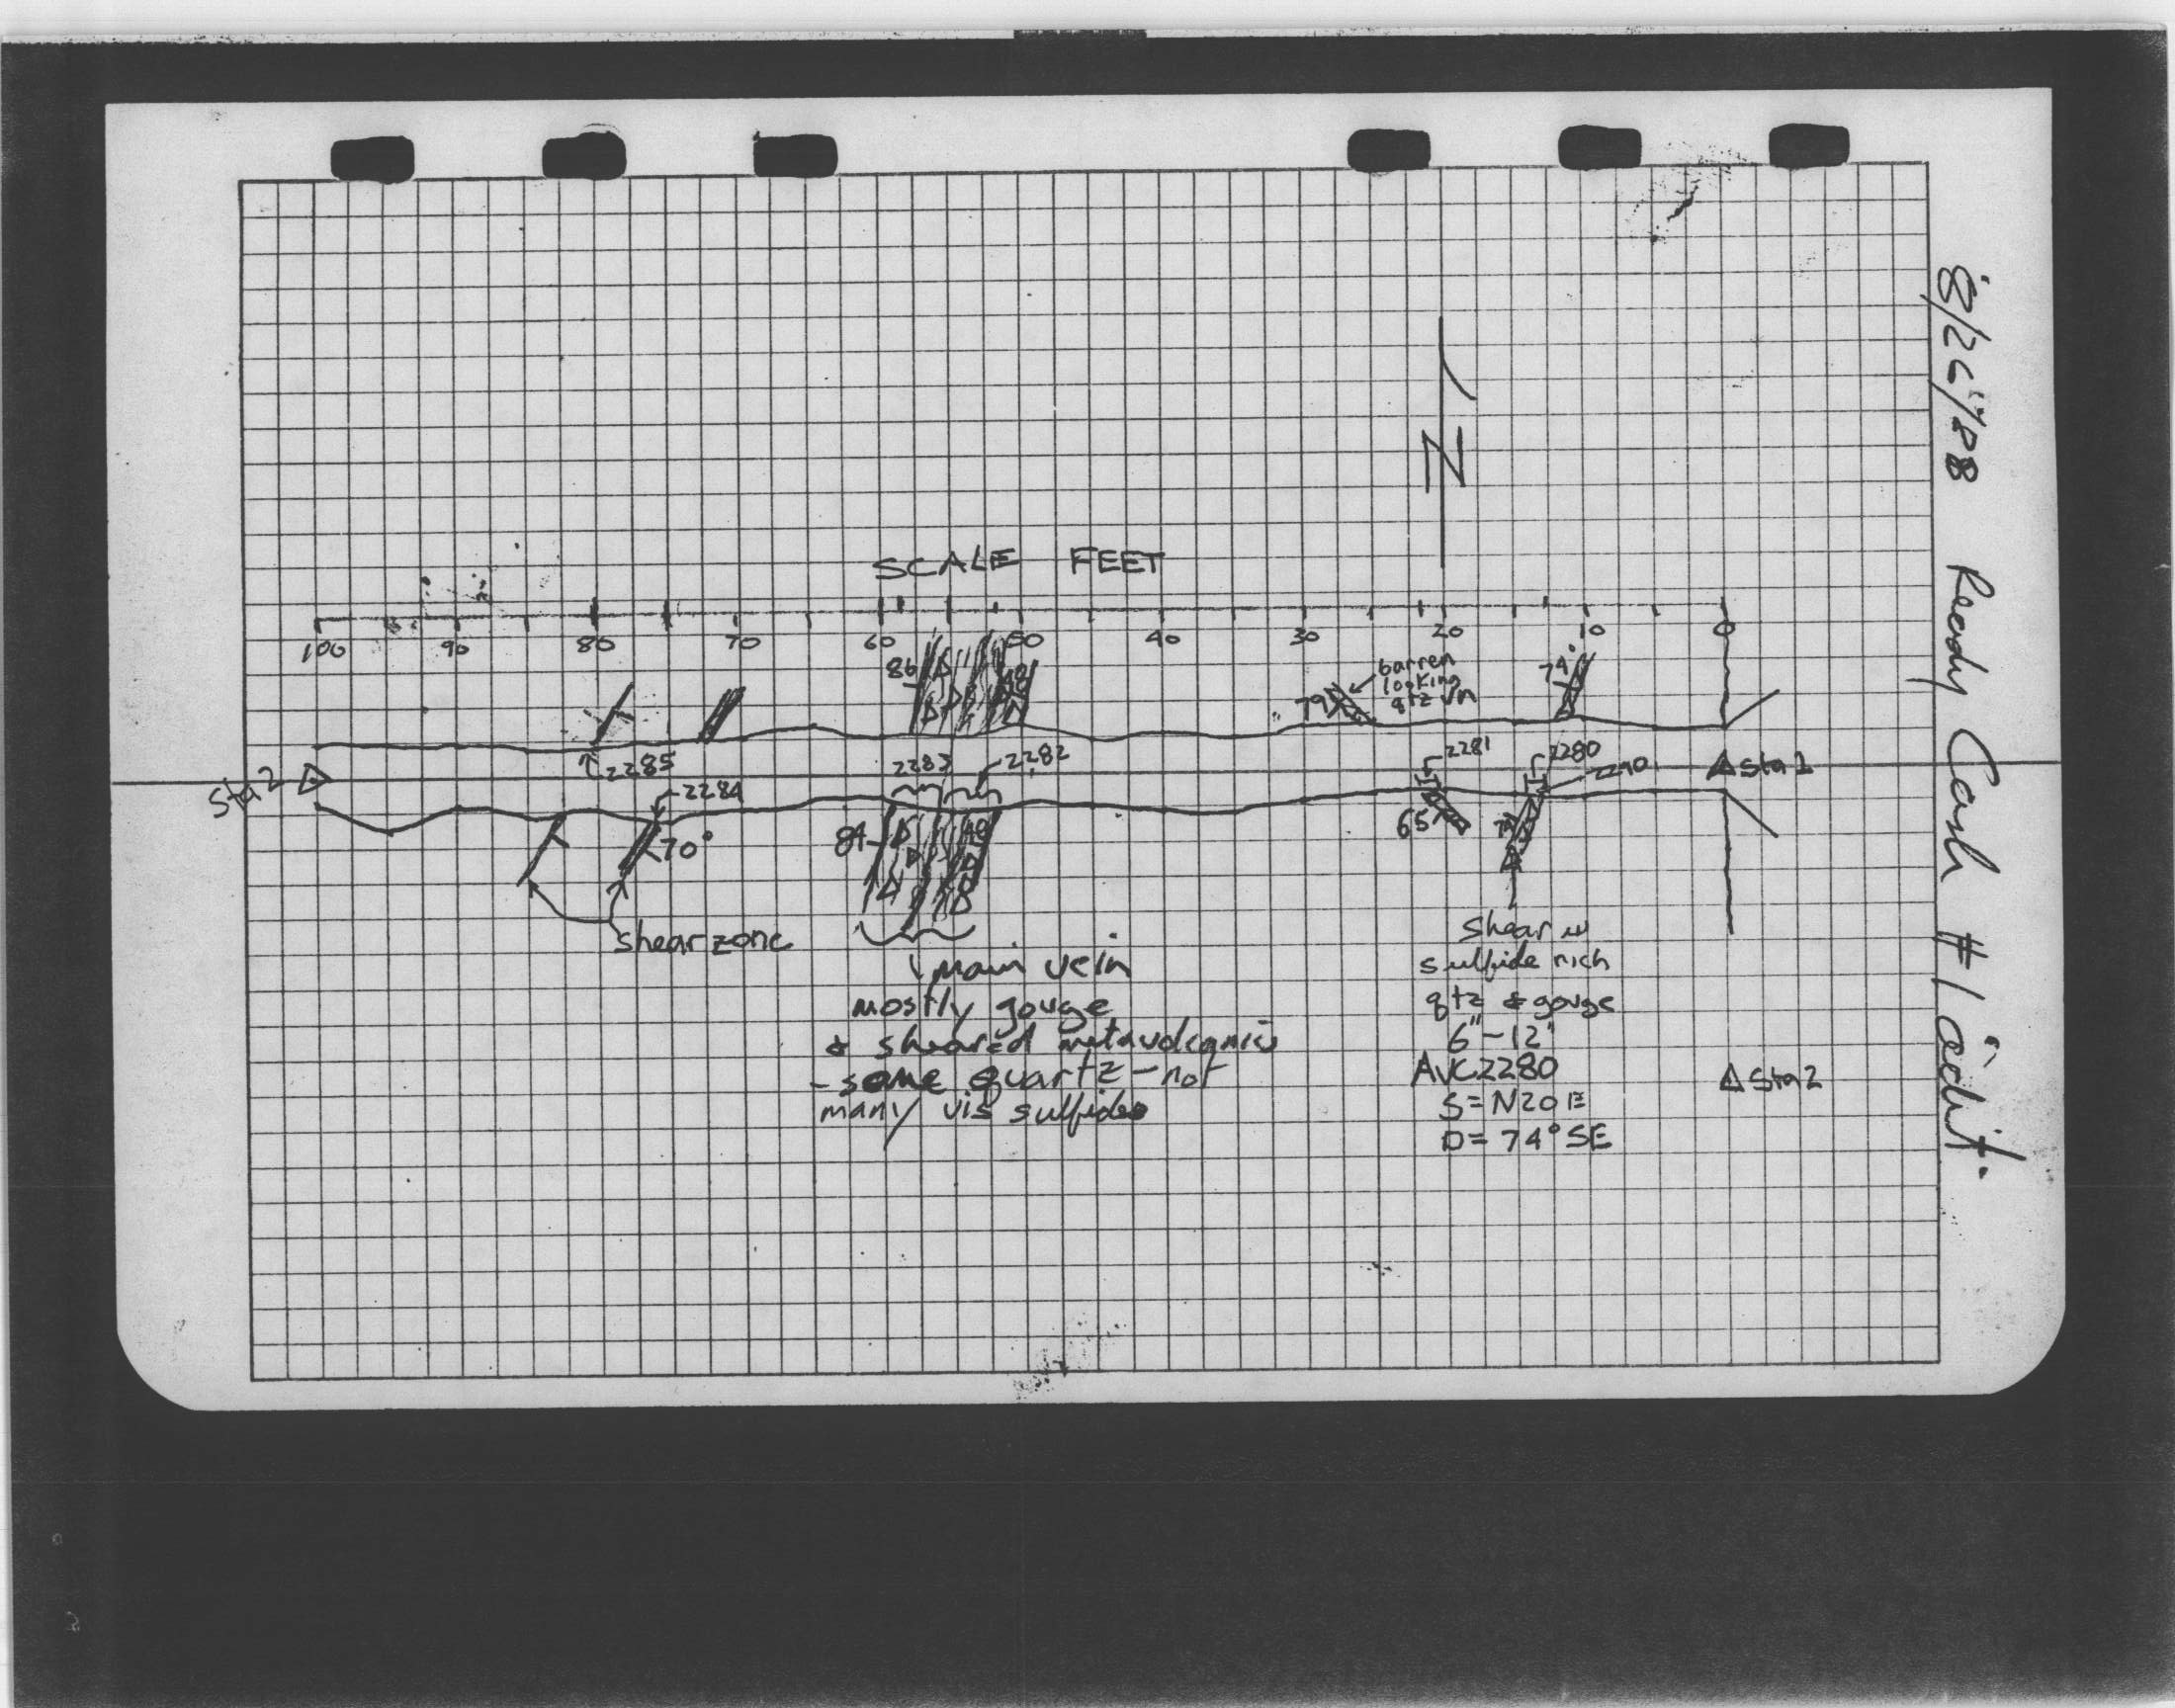 8/26/88 Ready Cash #1 adit.
N
SCALE FEET
100 90 80 70 60 50 40 30 20 10 0
86
barren
looking
qtz vn
79
74°
2285
2283
2282
2281
2280
2290
Sta 2
Sta 1
2284
70°
84
65
shear zone
main vein
mostly gouge
& sheared metavolcanics
- some quartz - not
many vis sulfides
Shear w
sulfide rich
qtz & gouge
6" - 12"
AVC2280
S = N20E
D = 74° SE
Sta 2